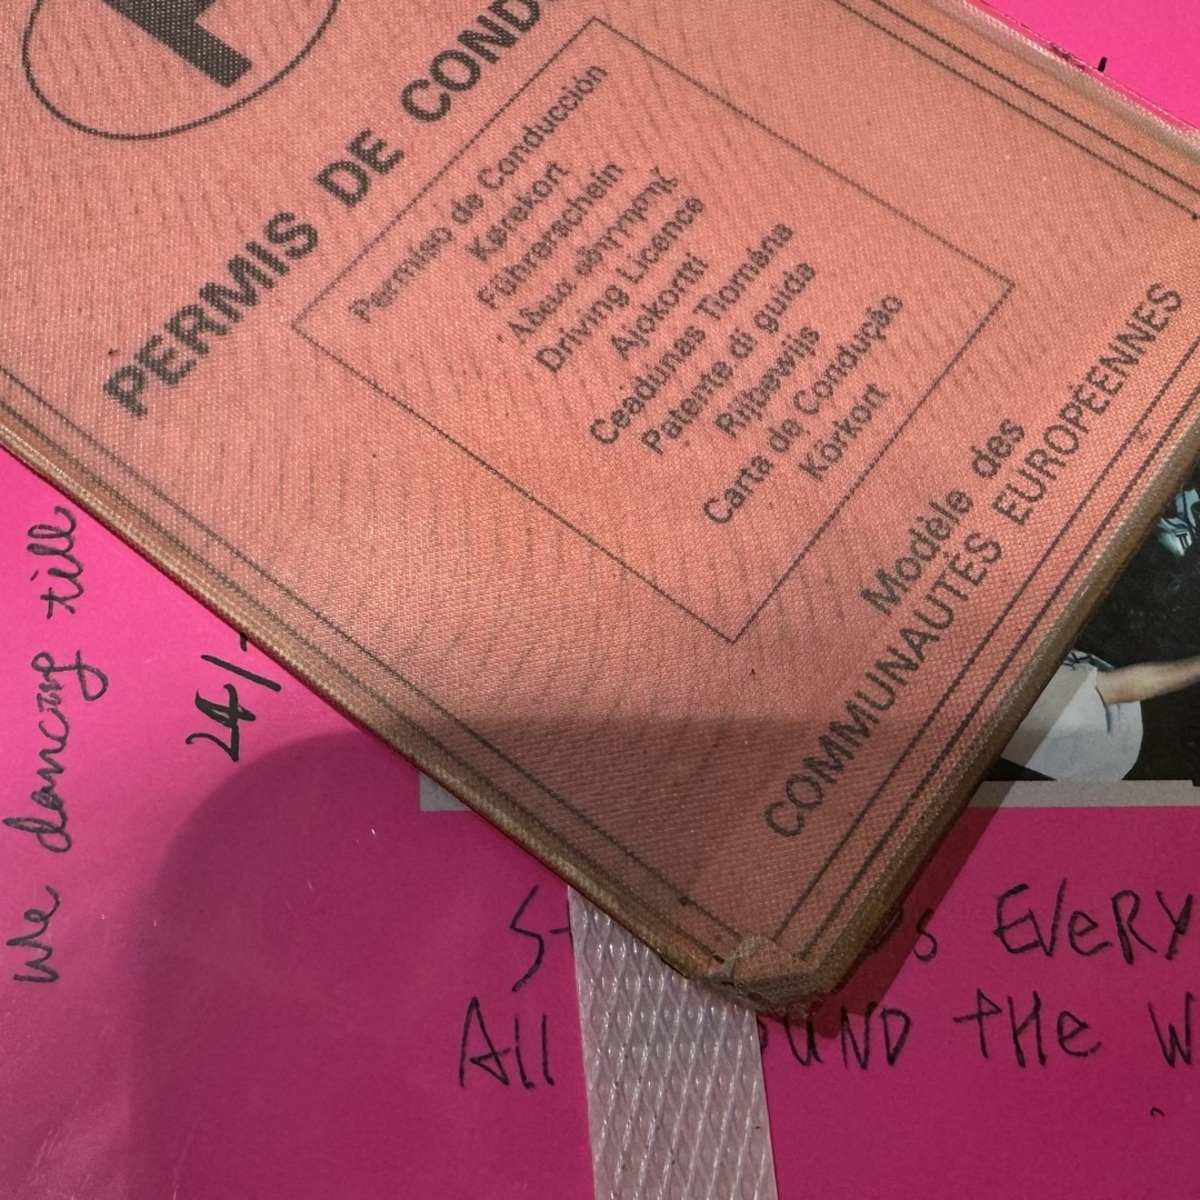 F
PERMIS DE COND
Permiso de Conducción
Kørekort
Führerschein
Άδεια οδήγησης
Driving Licence
Ajokortti
Ceadúnas Tiomána
Patente di guida
Rijbewijs
Carta de Condução
Körkort
Modèle des
COMMUNAUTÉS EUROPÉENNES
we dancing till
24/
EVERY
All THe W